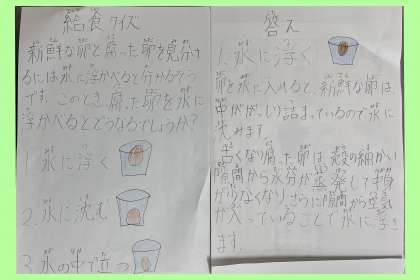 給食クイズ
新鮮な卵と腐った卵を見分け
るには水に浮かべると分かるそう
です。このとき、腐った卵を水に
浮かべるとどうなるでしょうか?
1.水に浮く
2.水に沈む
3.水の中で立つ
答え
1.水に浮く
卵を水に入れると、新鮮な卵は、
中がぎっしり詰まっているので水に
沈みます。
古くなり腐った卵は、殻の細かい
隙間から水分が蒸発して中身
が少なくなり、さらに隙間から空気
が入っていることで水に浮き
ます。